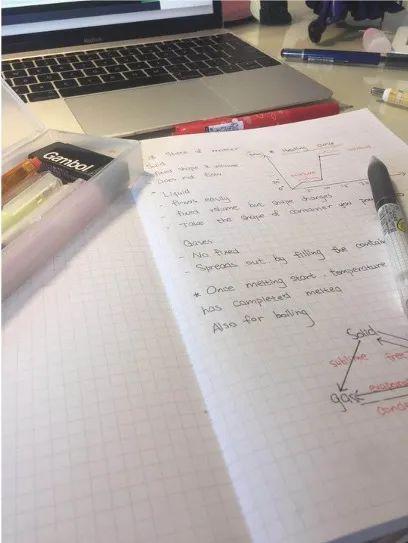 MacBook
Gambol
* States of matter
Solid
- fixed shape & volume
- Does not flow
* Heating curve
- Liquid
- flows easily
- fixed volume but shape changes
- Take the shape of container you
Gases
- No fixed
- Spreads out by filling the
* Once melting start, temperature
has completed melted
Also for boiling
Solid
sublime
gas